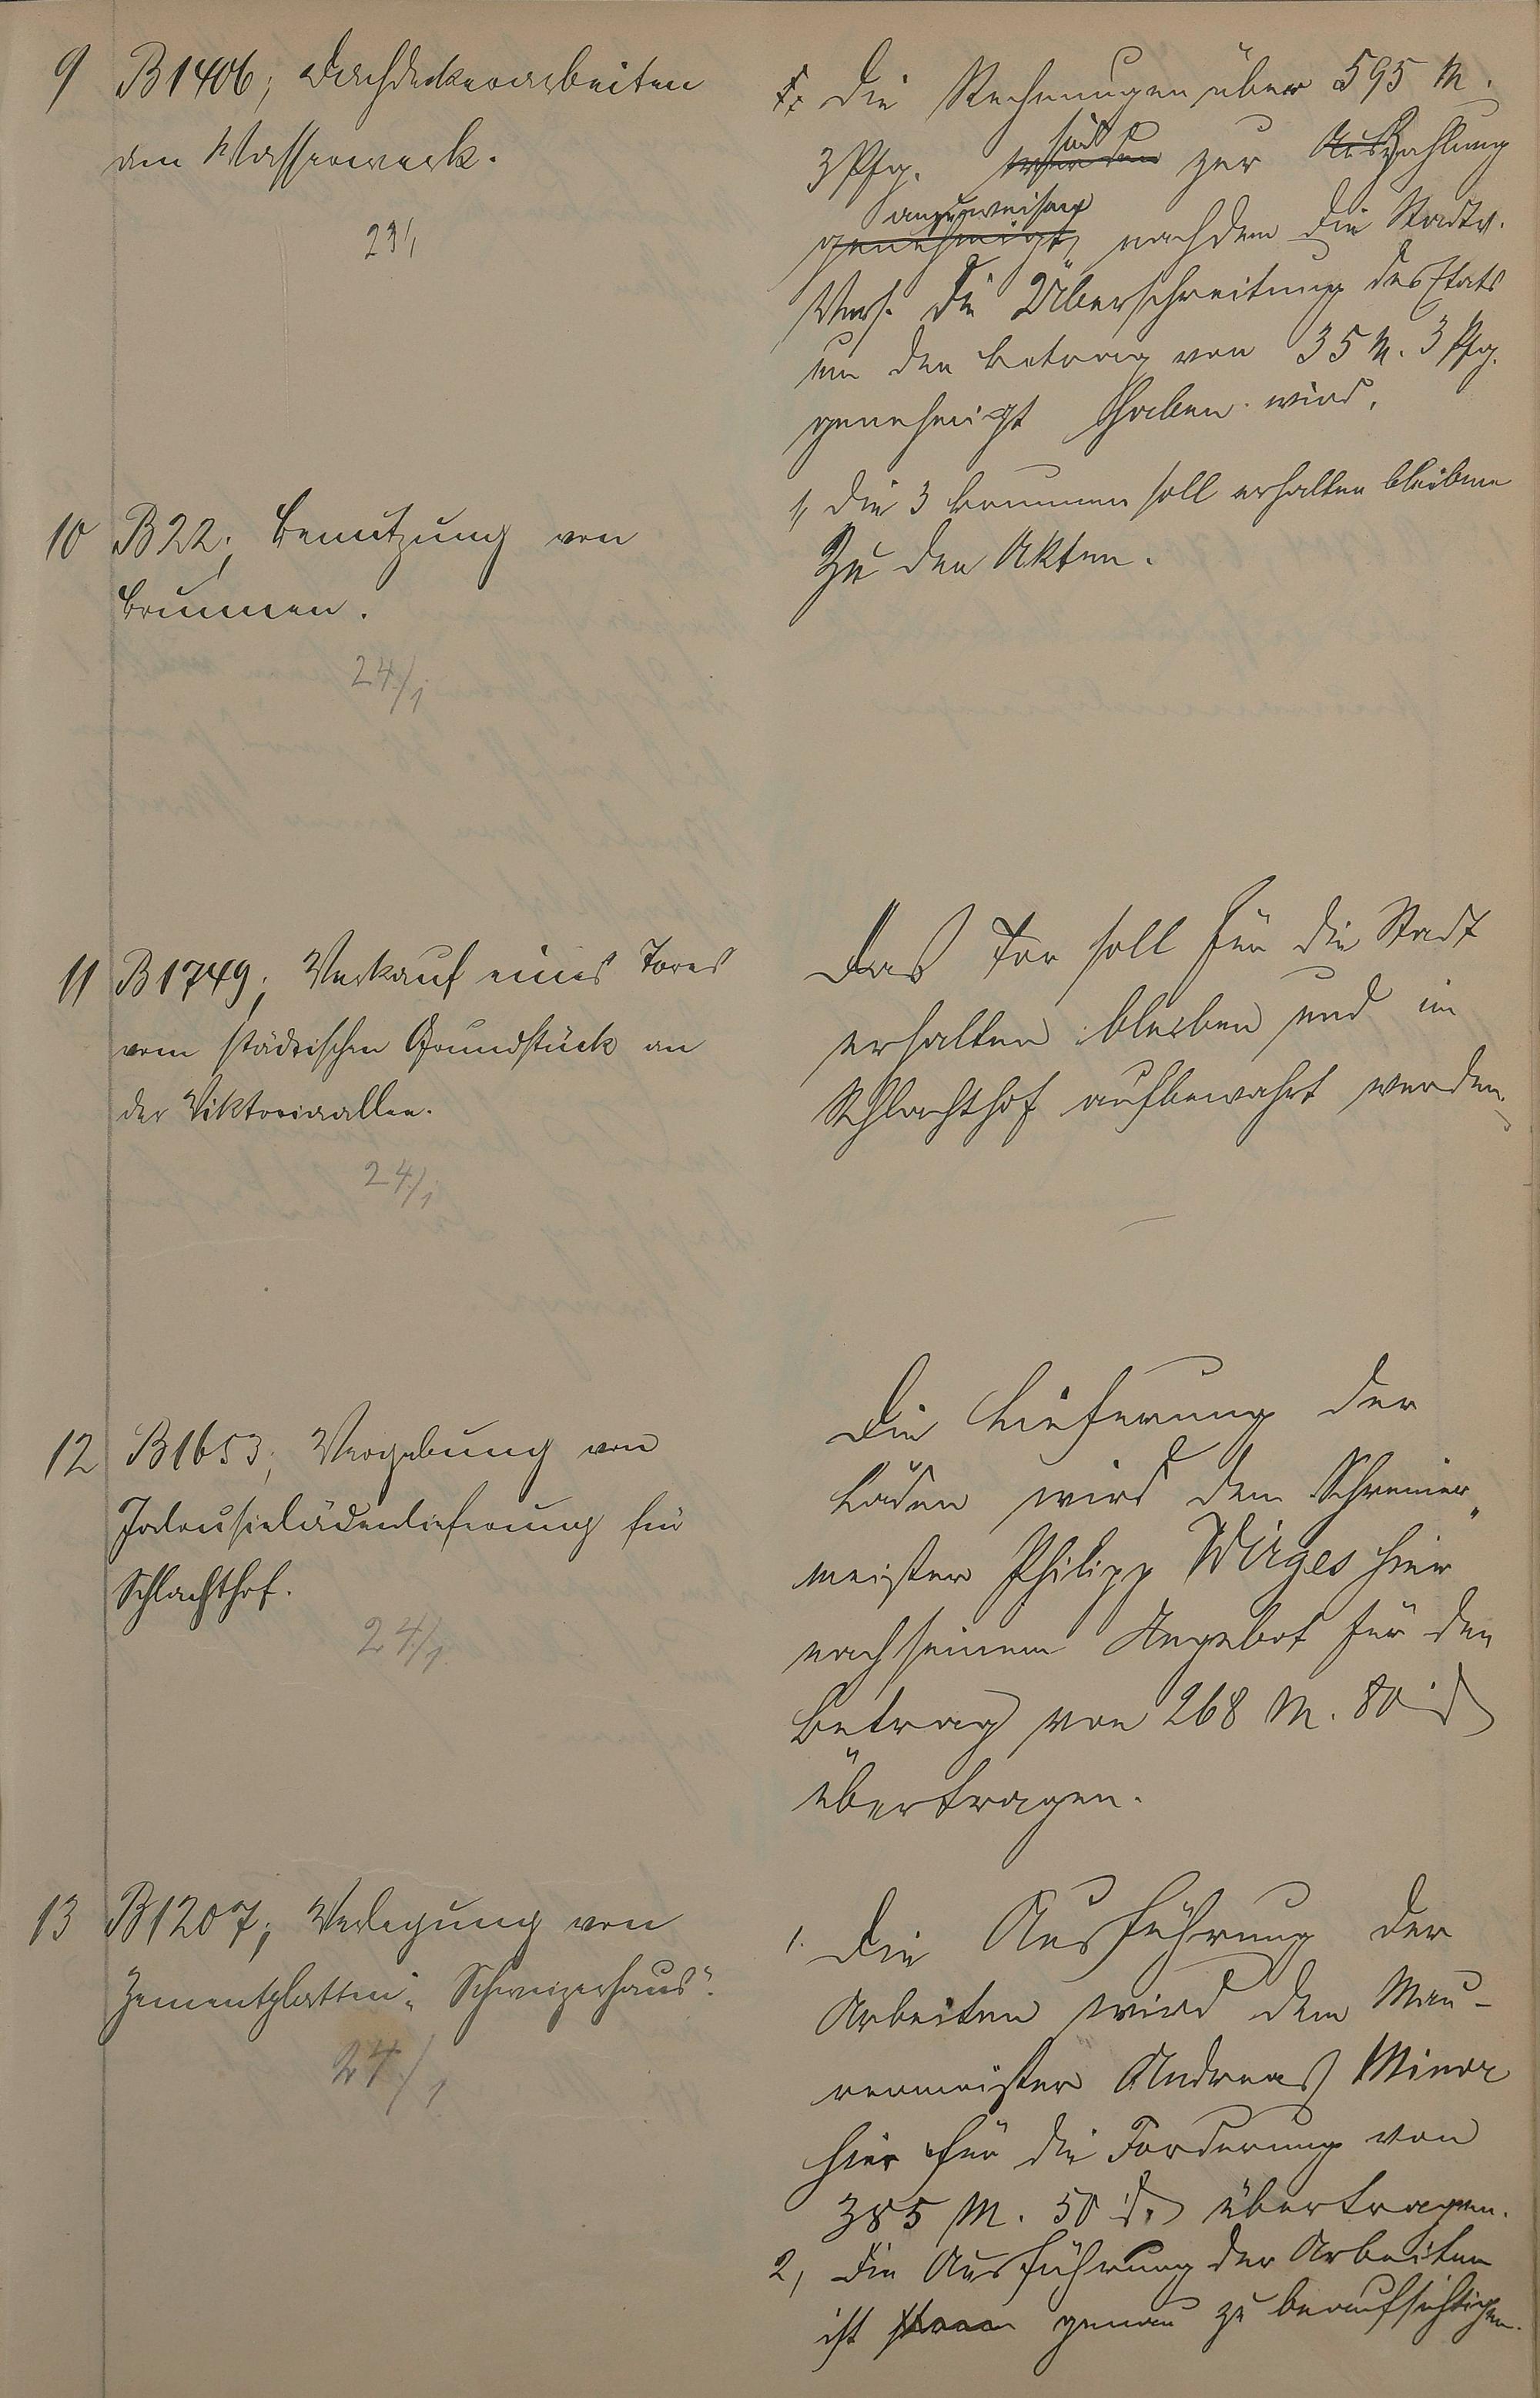 9 B1406; Dachdeckerarbeiten
am Wasserwerk.
23/1
Die Rechnungen über 595 M.
3 Pfg. werden sind zur Auszahlung
genehmigt, anzuweisen nachdem die Stadtv.
Vers. die Überschreitung des Etats
um den Betrag von 35 M. 3 Pfg.
genehmigt haben wird.
10 B22; Benutzung von
Brunnen.
24./1
1, Die 3 Brunnen soll erhalten bleiben
Zu den Akten.
11 B1749; Verkauf eines Tores
vom städtischen Grundstück an
der Viktoriaallee.
24./1
Das Tor soll für die Stadt
erhalten bleiben und im
Schlachthof aufbewahrt werden.
12 B1653; Vergebung von
Jalousielädenlieferung für
Schlachthof.
24./1
Die Lieferung der
Läden wird dem Schreiner„
meister Philipp Wirges hier
nach seinem Angebot für den
Betrag von 268 M. 80 ₰
übertragen.
13 B1207; Verlegung von
Zementplatten „Schweizerhaus".
24./1
1. Die Ausführung der
Arbeiten wird dem Mau-
rermeister Andreas Minor
hier für die Forderung von
385 M. 50 ₰ übertragen.
2, Die Ausführung der Arbeiten
ist genau zu beaufsichtigen.